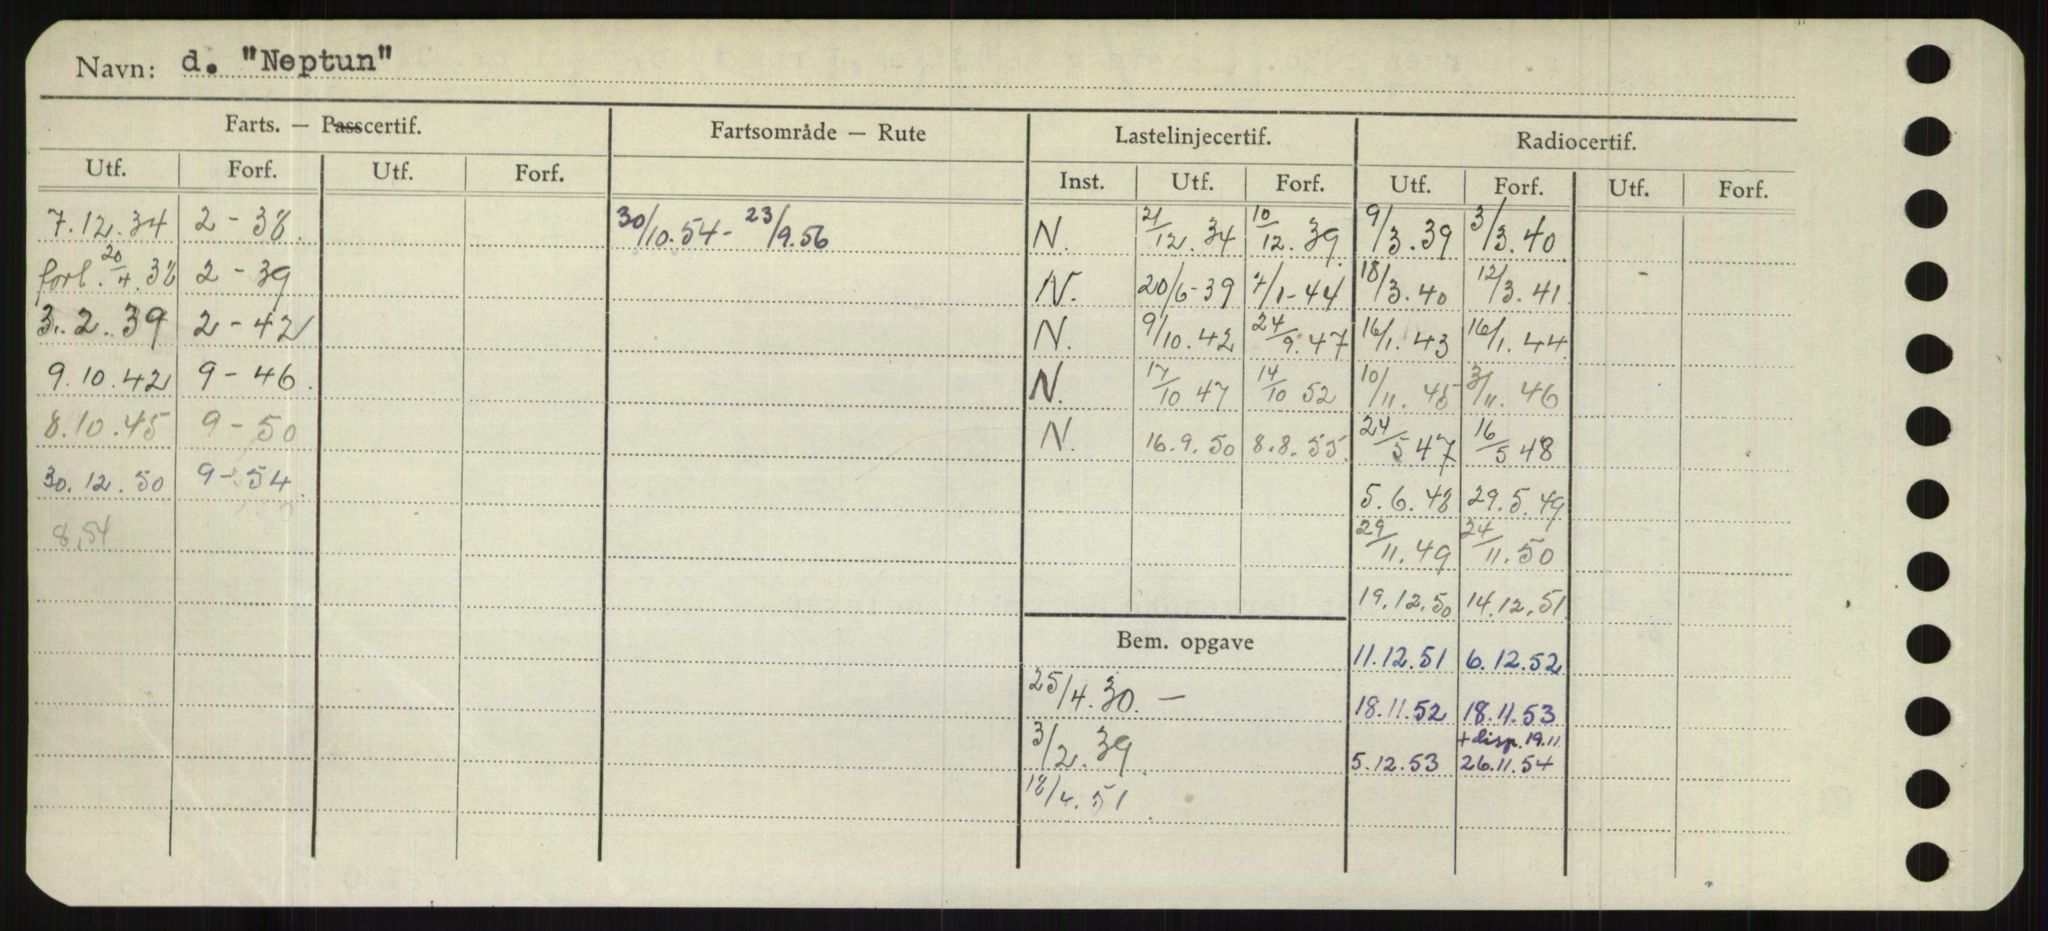 Navn: d. "Neptun"
Farts. — Passcertif. Fartsområde — Rute Lastelinjecertif. Radiocertif.
Utf. Forf. Utf. Forf. Inst. Utf. Forf. Utf. Forf. Utf. Forf.
7.12.34 2-38 30/10.54- 23/9.56 N. 21/12.34 10/12.39 9/3.39 3/3.40
forl. 20/4.38 2-39 N. 20/6-39 7/1-44 18/3.40 12/3.41
3.2.39 2-42 N. 9/10.42 24/9.47 16/1.43 16/1.44
9.10.42 9-46. N. 17/10 47 14/10 52 10/11.45 3/11.46
8.10.45 9-50 N. 16.9.50 8.8.55. 24/5 47 16/5 48
30.12.50 9-54. 5.6.48 29.5.49
8.54 29/11.49 24/11.50
19.12.50 14.12.51
Bem. opgave 11.12.51 6.12.52
25/4.30. — 18.11.52 18.11.53
+disp. 19.11
3/2.39 5.12.53 26.11.54
18/4.51